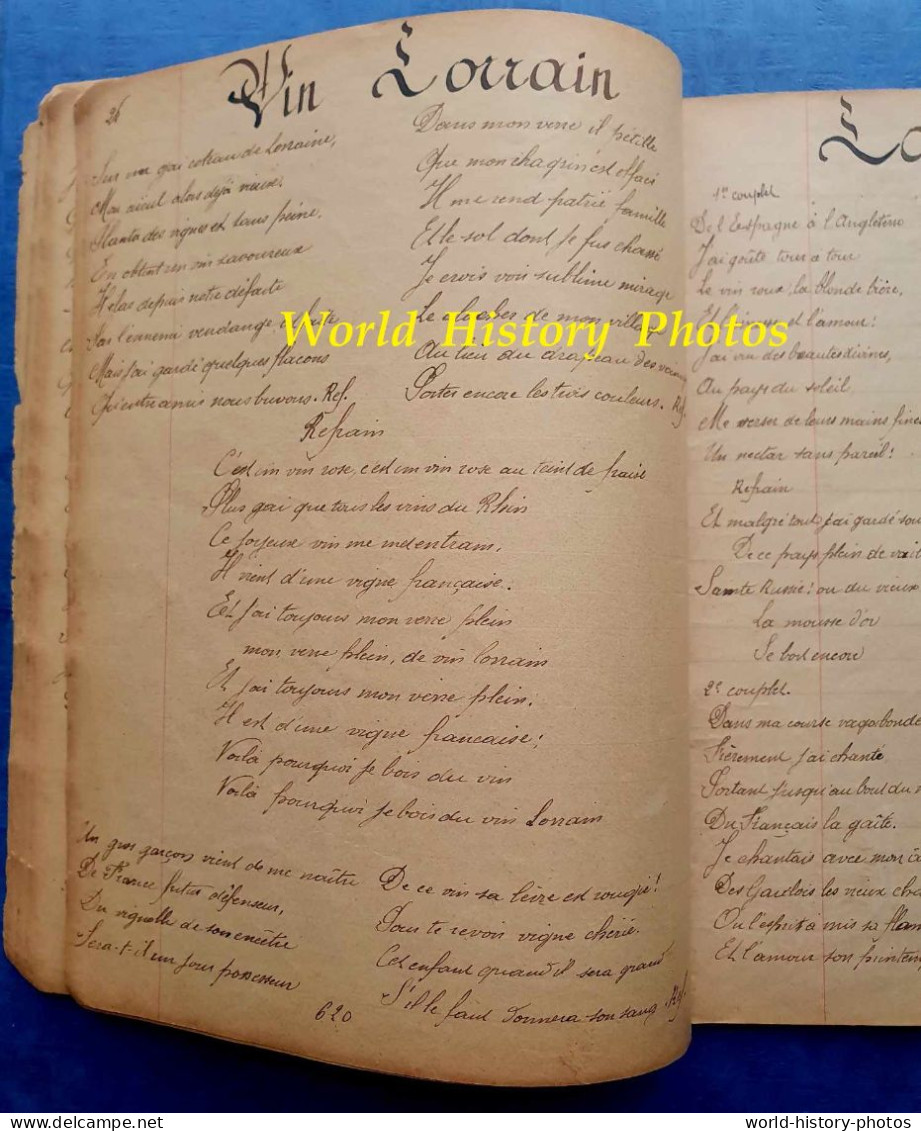 26
Vin Lorrain
Sur un gai coteau de Lorraine,
Mon aïeul alors déjà vieux,
Planta des vignes et sans peine,
En obtint un vin savoureux
Helas depuis notre défaite
Sas l'ennemi vendange
Mais j'ai gardé quelques flacons
Qu'entre amis nous buvons. Ref.
Dans mon verre il pétille
Que mon chagrin est effacé
Il me rend patrie famille
Et le sol dont je fus chassé
Je crois voir sublime mirage
Le clocher de mon village
Au lieu du drapeau des
Porter encore les trois couleurs. Ref
Refrain
C'est un vin rose, c'est un vin rose au teint de fraise
Plus gai que tous les vins du Rhin
Ce joyeux vin me met en train,
Il vient d'une vigne française.
Et j'ai toujours mon verre plein
mon verre plein, de vin lorrain
Et j'ai toujours mon verre plein.
Il est d'une vigne française;
Voilà pourquoi je bois du vin
Voilà pourquoi je bois du vin Lorrain
Un gros garçon vient de me naître
De France futur défenseur,
Du vignoble de son ancêtre
Sera-t-il un jour possesseur
De ce vin sa lèvre est rougie!
Pour te revoir vigne chérie.
Cet enfant quand il sera grand
S'il le faut donnera son sang. Ref.
620
1er couplet
De l'Espagne à l'Angleterre
J'ai goûté tour à tour
Le vin roux, la blonde bière,
Et et l'amour!
J'ai vu des beautés divines,
Au pays du soleil
Me verser de leurs mains fines
Un nectar sans pareil!
Refrain
Et malgré tout j'ai gardé
De ce pays plein de
Sainte Russie! ou du vieux
La mousse d'or
Se boit encore
2e couplet.
Dans ma course vagabonde
Fièrement j'ai chanté
Portant jusqu'au bout du
Du Français la gaîté.
Je chantais avec mon
Des Gaulois les vieux
Ou l'esprit à mis sa
Et l'amour son
World History Photos
world-history-photos